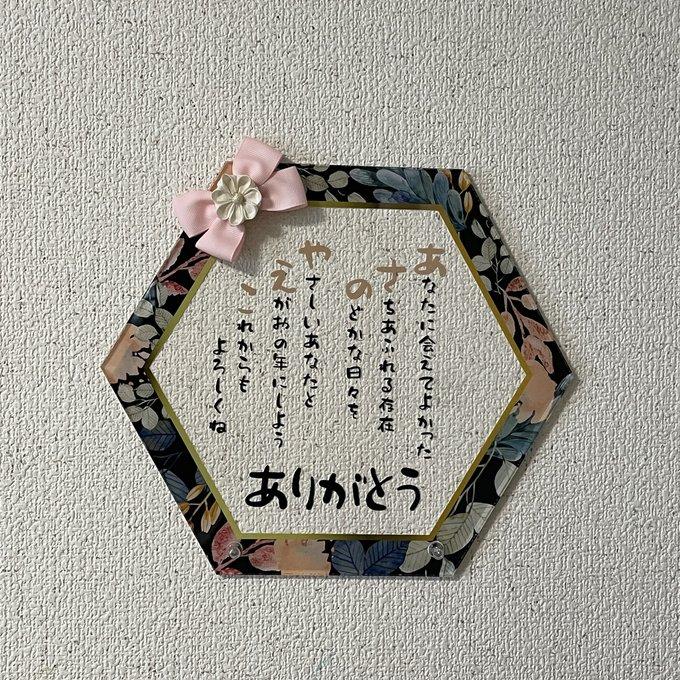 あなたに会えてよかった
さちあふれる存在
のどかな日々を
やさしいあなたと
えがおの年にしよう
これからも
よろしくね
ありがとう